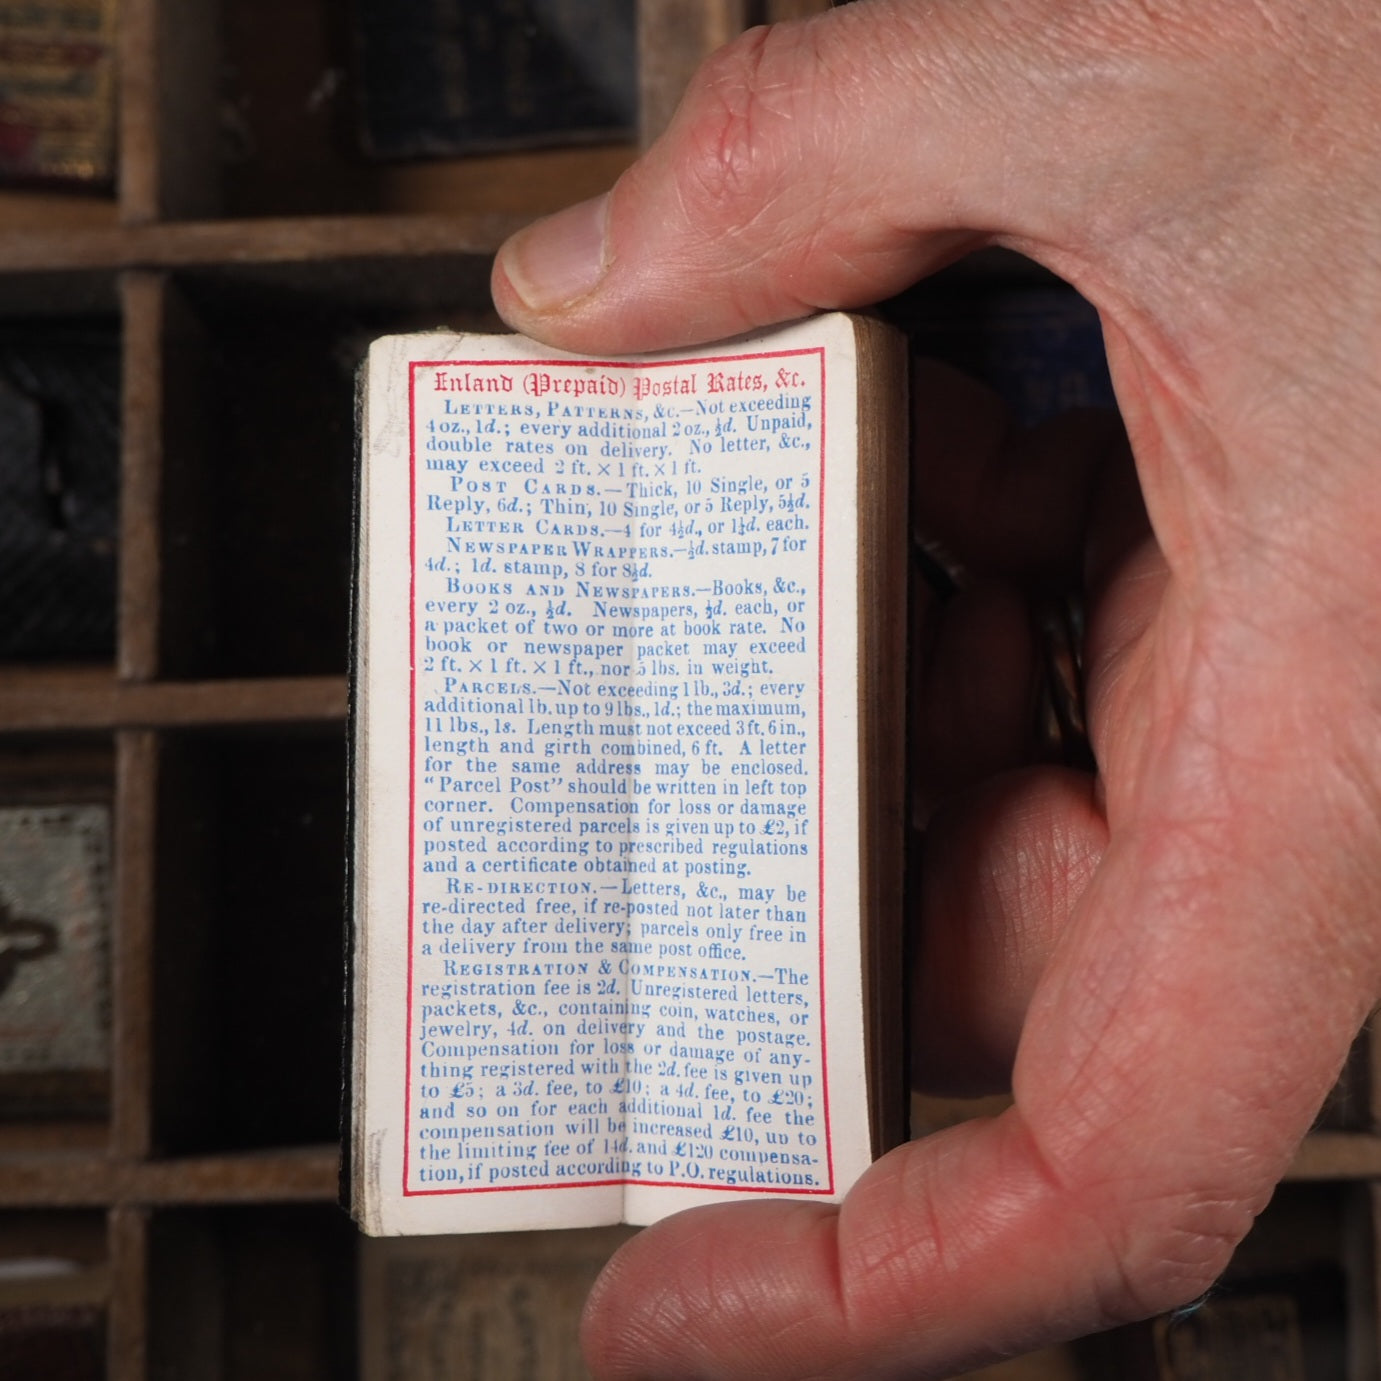 Inland (Prepaid) Postal Rates, &c.
LETTERS, PATTERNS, &c.—Not exceeding
4 oz., 1d.; every additional 2 oz., ½d. Unpaid,
double rates on delivery. No letter, &c.,
may exceed 2 ft. × 1 ft. × 1 ft.
POST CARDS.—Thick, 10 Single, or 5
Reply, 6d.; Thin, 10 Single, or 5 Reply, 5½d.
LETTER CARDS.—4 for 4½d., or 1¼d. each.
NEWSPAPER WRAPPERS.—½d. stamp, 7 for
4d.; 1d. stamp, 8 for 8½d.
BOOKS AND NEWSPAPERS.—Books, &c.,
every 2 oz., ½d. Newspapers, ½d. each, or
a packet of two or more at book rate. No
book or newspaper packet may exceed
2 ft. × 1 ft. × 1 ft., nor 5 lbs. in weight.
PARCELS.—Not exceeding 1 lb., 3d.; every
additional lb. up to 9 lbs., 1d.; the maximum,
11 lbs., 1s. Length must not exceed 3 ft. 6 in.,
length and girth combined, 6 ft. A letter
for the same address may be enclosed.
“Parcel Post” should be written in left top
corner. Compensation for loss or damage
of unregistered parcels is given up to £2, if
posted according to prescribed regulations
and a certificate obtained at posting.
RE-DIRECTION.—Letters, &c., may be
re-directed free, if re-posted not later than
the day after delivery; parcels only free in
a delivery from the same post office.
REGISTRATION & COMPENSATION.—The
registration fee is 2d. Unregistered letters,
packets, &c., containing coin, watches, or
jewelry, 4d. on delivery and the postage.
Compensation for loss or damage of any-
thing registered with the 2d. fee is given up
to £5; a 3d. fee, to £10; a 4d. fee, to £20;
and so on for each additional 1d. fee the
compensation will be increased £10, up to
the limiting fee of 14d. and £120 compensa-
tion, if posted according to P.O. regulations.